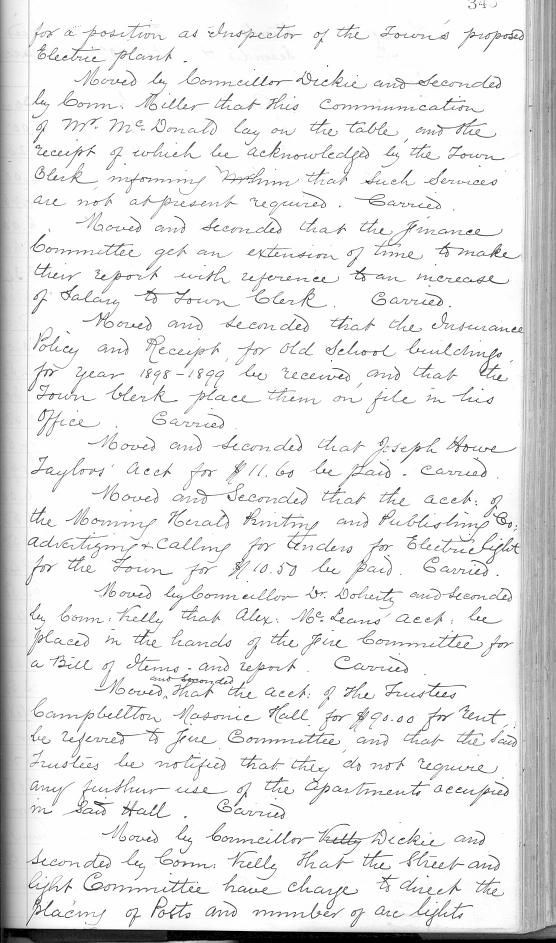 34
for a position as Inspector of the Town's proposed
Electric plant.
Moved by Councillor Dickie and seconded
by Coun: Miller that this Communication
of Mr. Mc.Donald lay on the table, and the
receipt of which be acknowledged by the Town
Clerk, informing him that such Services
are not at present required. Carried.
Moved and seconded that the Finance
Committee get an extension of time to make
their report with reference to an increase
of Salary to Town Clerk. Carried.
Moved and seconded that the Insurance
Policy and Receipt, for Old School buildings,
for year 1898-1899 be received, and that the
Town Clerk place them on file in his
Office. Carried
Moved and seconded that Joseph Howe
Taylors' Acct for $11.60 be paid. Carried.
Moved and Seconded that the acct: of
the Morning Herald Printing and Publishing Co:
advertizing & Calling for tenders for Electric light
for the Town for $10.50 be paid. Carried.
Moved by Councillor Dr. Doherty and seconded
by Coun: Kelly that Alex: Mc.Leans' acct: be
placed in the hands of the Fire Committee for
a Bill of Items. and report. Carried
Moved and seconded that the acct: of the Trustees
Campbellton Masonic Hall for $90.00 for rent,
be referred to Fire Committee, and that the Said
Trusties be notified that they do not require
any further use of the apartments occupied
in Said Hall. Carried
Moved by Councillor Kelly Dickie and
seconded by Coun: Kelly that the Street and
light Committee have charge to direct the
placing of Posts and number of arc lights